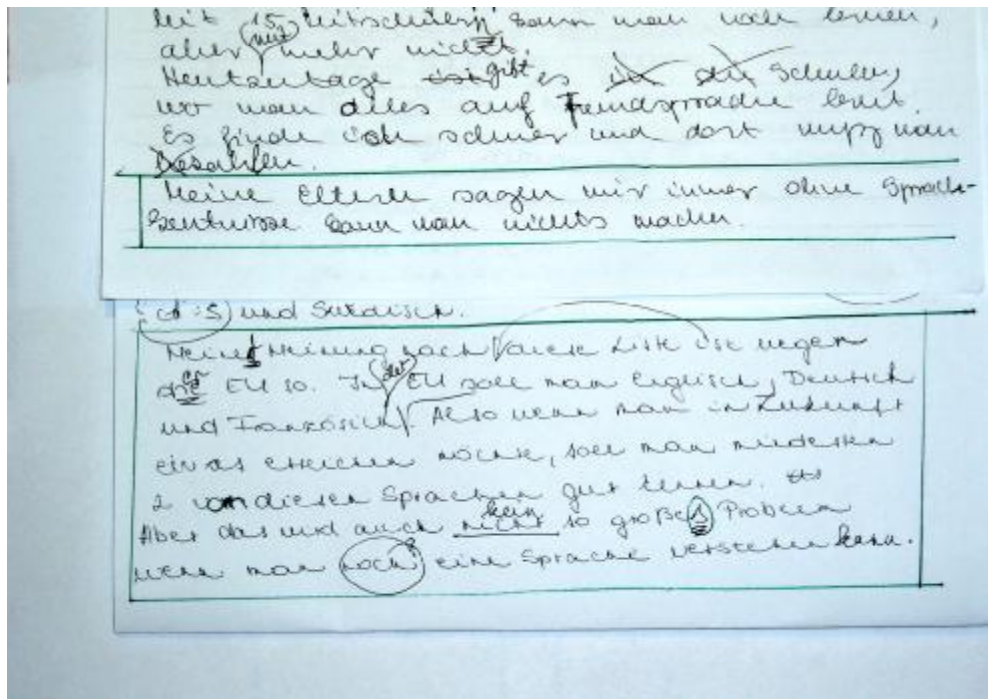 Mit 15 Mitschülern kann man noch lernen,
nur
aber mehr nicht.
Heutzutage gibt es die Schulen,
wo man alles auf Fremdsprache lernt.
Es finde ich schwer und dort muß man
bezahlen.
Meine Eltern sagen mir immer ohne Sprach-
kentnisse kann man nichts machen.
und Suedisch.
Meine Meinung nach diese Liste ist wegen
der
die EU so. In EU soll man Englisch, Deutsch
und Französich. Also wenn man in Zukunft
etwas erreichen möchte, soll man mindesten
2 von diesen Sprachen gut lernen.
kein
Aber das wird auch nicht so großes Problem
wenn man noch eine Sprache verstehen kann.